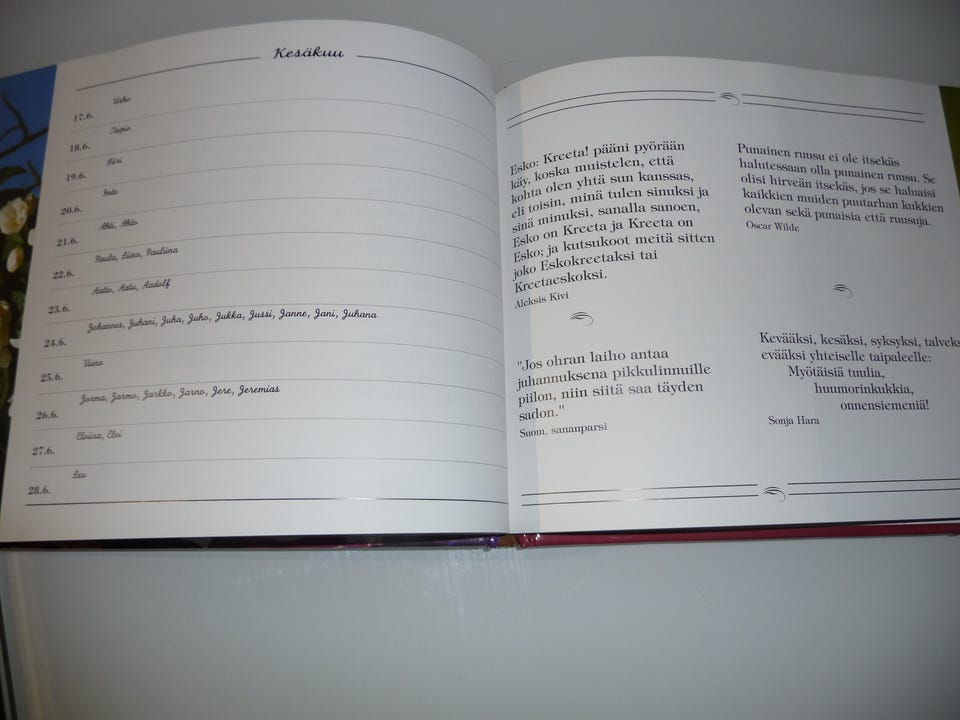 Kesäkuu
17.6. Urho
18.6. Tapio
19.6. Siiri
20.6. Into
21.6. Ahti, Ahto
22.6. Paula, Liina, Pauliina
23.6. Aatto, Aatu, Aadolf
24.6. Johannes, Juhani, Juha, Juho, Jukka, Jussi, Janne, Jani, Juhana
25.6. Uuno
26.6. Jorma, Jarmo, Jarkko, Jarno, Jere, Jeremias
27.6. Elviira, Elvi
28.6. Leo
Esko: Kreeta! pääni pyörään
käy, koska muistelen, että
kohta olen yhtä sun kanssas,
eli toisin, minä tulen sinuksi ja
sinä minuksi, sanalla sanoen,
Esko on Kreeta ja Kreeta on
Esko; ja kutsukoot meitä sitten
joko Eskokreetaksi tai
Kreetaeskoksi.
Aleksis Kivi
"Jos ohran laiho antaa
juhannuksena pikkulinnuille
piilon, niin siitä saa täyden
sadon."
Suom. sananparsi
Punainen ruusu ei ole itsekäs
halutessaan olla punainen ruusu. Se
olisi hirveän itsekäs, jos se haluaisi
kaikkien muiden puutarhan kukkien
olevan sekä punaisia että ruusuja.
Oscar Wilde
Kevääksi, kesäksi, syksyksi, talveks
evääksi yhteiselle taipaleelle:
Myötäisiä tuulia,
huumorinkukkia,
onnensiemeniä!
Sonja Hara